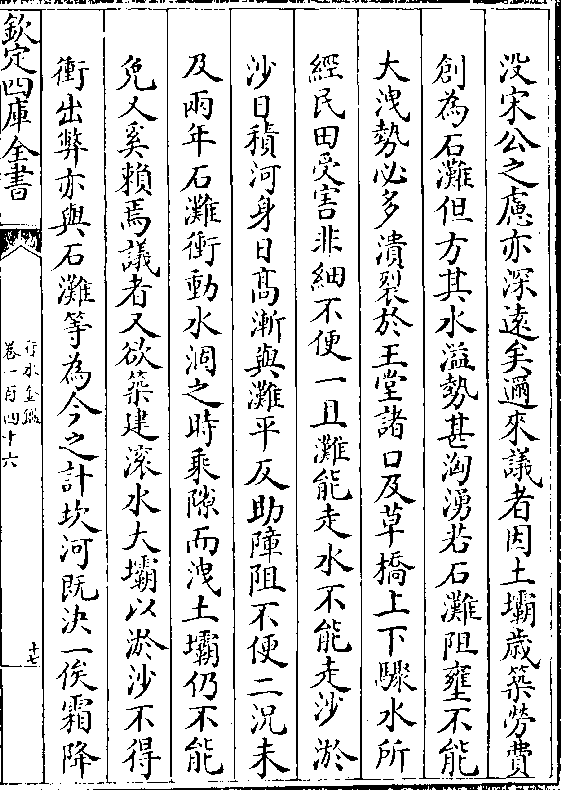 没宋公之慮亦深遠矣邇來議者因土壩歲築勞費
創為石灘但方其水溢勢甚洶湧若石灘阻壅不能
大洩勢必多潰裂於王堂諸口及草橋上下驟水所
經民田受害非細不便一且灘能走水不能走沙淤
沙日積河身日髙漸與灘平反助障阻不便二況未
及兩年石灘衝動水涸之時乘隙而洩土壩仍不能
免又奚賴焉議者又欲築建滾水大壩以淤沙不得
衝出弊亦與石灘等為今之計坎河既決一俟霜降
欽定四庫全書
行水金鑑
卷一百四十六
十七